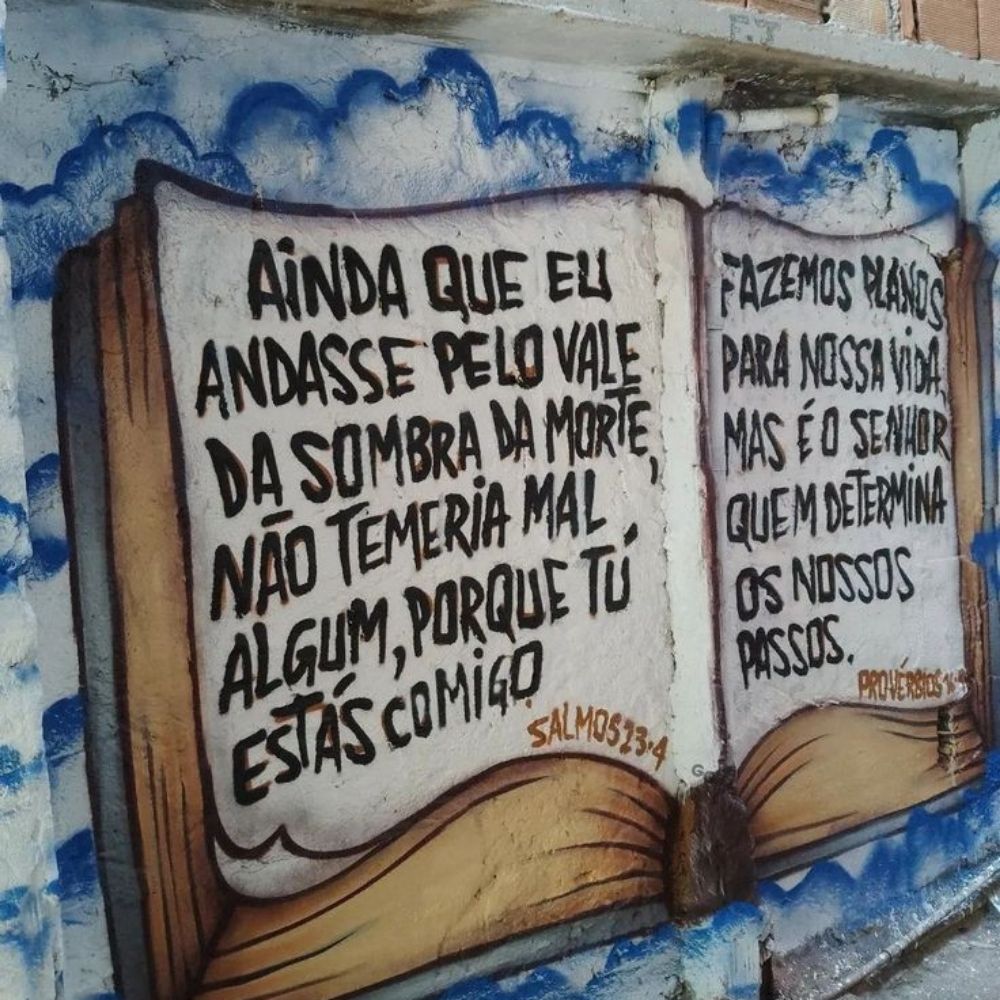 AINDA QUE EU
ANDASSE PELO VALE
DA SOMBRA DA MORTE,
NÃO TEMERIA MAL
ALGUM, PORQUE TÚ
ESTÁS COMIGO.
SALMOS 23.4
FAZEMOS PLANOS
PARA NOSSA VIDA,
MAS É O SENHOR
QUEM DETERMINA
OS NOSSOS
PASSOS.
PROVÉRBIOS